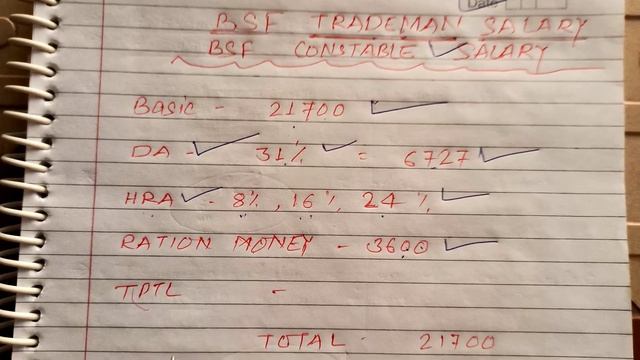 Date
BSF TRADEMAN SALARY
BSF CONSTABLE SALARY
Basic - 21700
DA - 31% = 6727
HRA - 8%, 16%, 24%
RATION MONEY - 3600
TPTL -
TOTAL - 21700